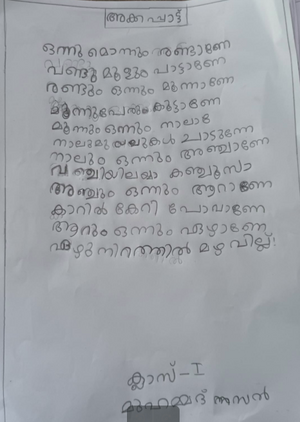 അക്ക പ്പാട്ട്
ഒന്നു മൊന്നും രണ്ടാണേ
വണ്ടു മൂളും പാട്ടാണേ
രണ്ടും ഒന്നും മൂന്നാണേ
മൂന്നുപേരും കൂട്ടാണേ
മൂന്നും ഒന്നും നാലാണേ
നാലുമു യലുകൾ ചാടുന്നേ
നാലും ഒന്നും അഞ്ചാണേ
അഞ്ചും ഒന്നും ആറാണേ
കാറിൽ കേറി പോവാണേ
ആറും ഒന്നും ഏഴാണേ
ഏഴു നിറത്തിൽ മഴ വില്ല്!
ക്ലാസ് - I
മുഹമ്മദ് അസൻ